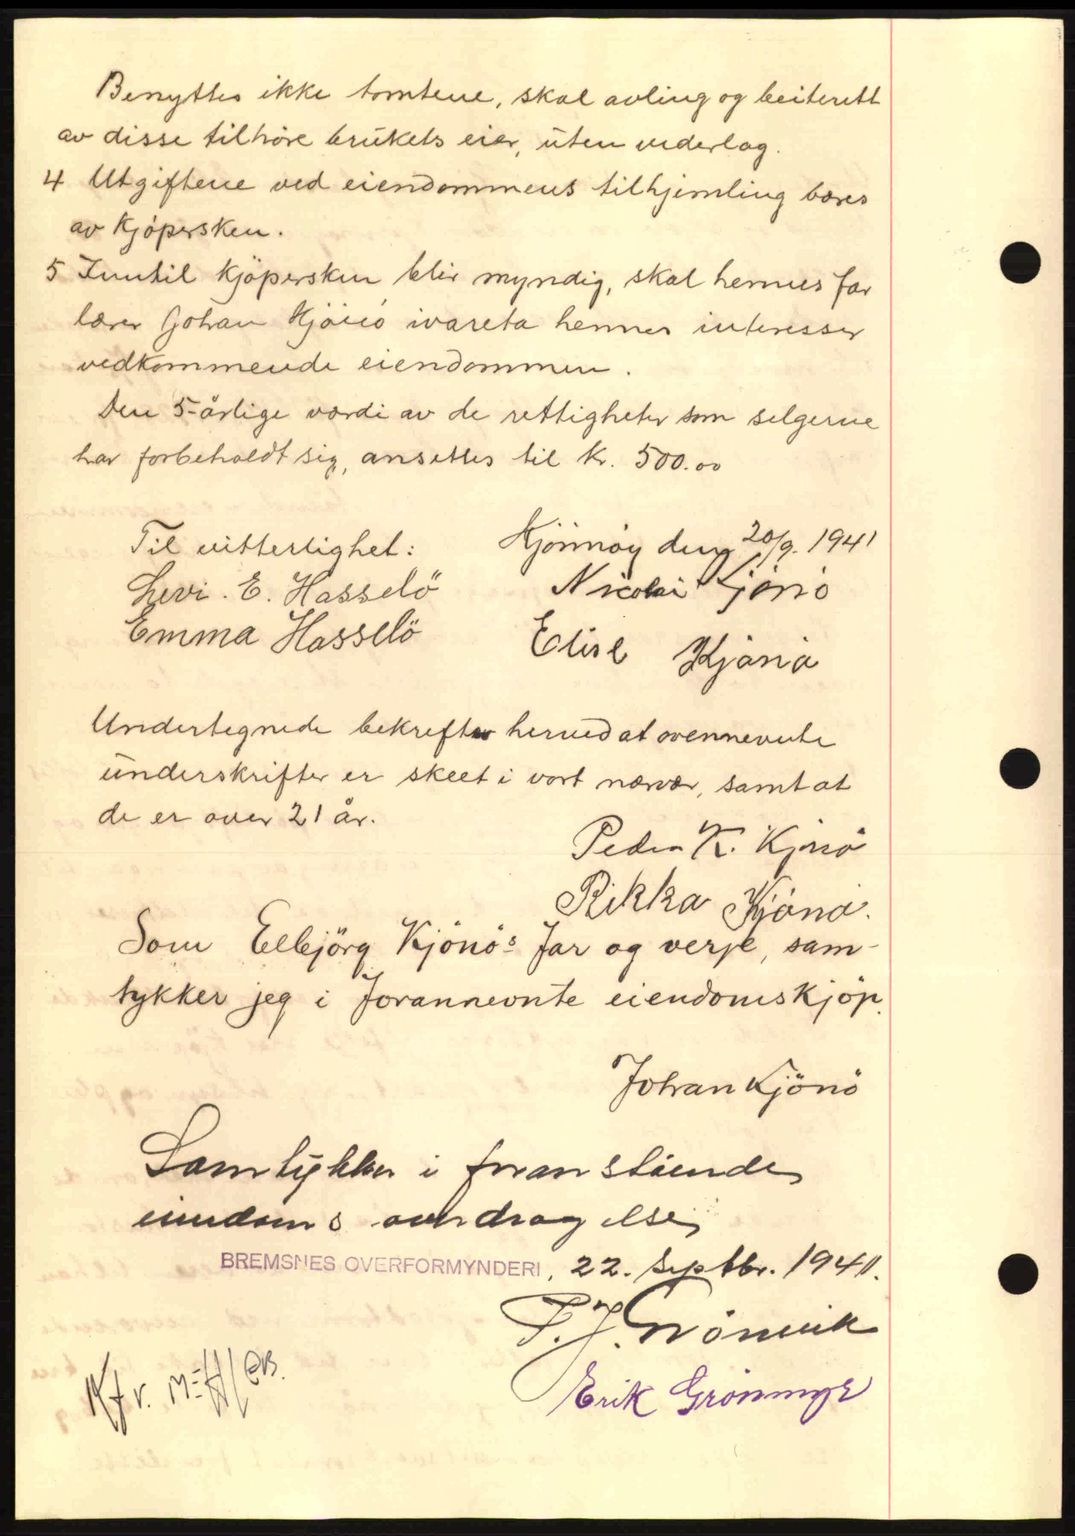 Benyttes ikke tomtene, skal avling og beiterett
av disse tilhöre brukets eier, uten vederlag.
4 Utgiftene ved eiendommens tilhjemling bæres
av kjöpersken.
5 Inntil kjöpersken blir myndig, skal hennes far
lærer Johan Kjönö ivareta hennes interesser
vedkommende eiendommen.
Den 5-årlige værdi av de rettigheter som selgerne
har forbeholdt sig, ansettes til kr. 500.00
Til vitterlighet: Kjönnöy den 20/9. 1941
Levi. E. Hasselö Nicolai Kjönö
Emma Hasselö Elise Kjönö
Undertegnede bekrefter herved at ovennevnte
underskrifter er skeet i vort nærvær, samt at
de er over 21 år.
Peder K. Kjönö
Rikka Kjönö.
Som Eelbjörg Kjönös far og verje, sam-
tykker jeg i forannevnte eiendomskjöp.
Johan Kjönö
Samtykker i foranstående
eiendoms overdragelse,
BREMSNES OVERFORMYNDERI, 22. Septbr. 1941.
P. J. Grönvik
Erik Grönmyr
Kfr.